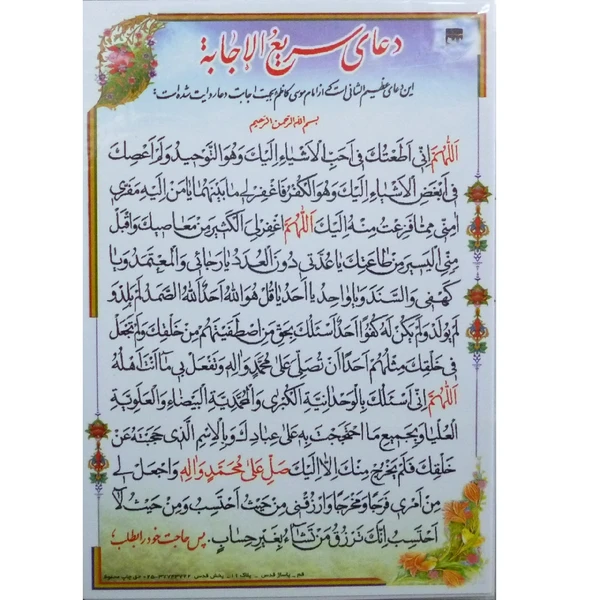 دعای سریع الإجابة
این دعای عظیم الشانی است که از امام موسی کاظم بجهت اجابت دعا روایت شده است:
بسم الله الرحمن الرحیم
اَللّهُمَّ اِنّی اَطَعْتُكَ فی اَحَبِّ الْاَشْیاءِ اِلَیْكَ وَهُوَ التَّوْحیدُ وَلَمْ اَعْصِكَ
فی اَبْغَضِ الْاَشْیاءِ اِلَیْكَ وَهُوَ الْكُفْرُ فَاغْفِرْ لی ما بَیْنَهُما یا مَنْ اِلَیْهِ مَفَرّی
امِنّی مِمّا فَزِعْتُ مِنْهُ اِلَیْكَ اَللّهُمَّ اغْفِرْ لِیَ الْكَثیرَ مِنْ مَعاصیكَ وَاقْبَلْ
مِنِّی الْیَسیرَ مِنْ طاعَتِكَ یا عُدَّتی دُونَ الْعُدَدِ یا رَجائی وَالْمُعْتَمَدَ وَیا
كَهْفی وَالسَّنَدَ وَیا واحِدُ یا اَحَدُ یا قُلْ هُوَ اللهُ اَحَدٌ اَللهُ الصَّمَدُ لَمْ یَلِدْ وَ
لَمْ یُولَدْ وَلَمْ یَكُنْ لَهُ كُفُوًا اَحَدٌ اَسْئَلُكَ بِحَقِّ مَنِ اصْطَفَیْتَهُمْ مِنْ خَلْقِكَ وَلَمْ تَجْعَلْ
فی خَلْقِكَ مِثْلَهُمْ اَحَدًا اَنْ تُصَلِّیَ عَلی مُحَمَّدٍ وَالِهِ وَتَفْعَلَ بی ما اَنْتَ اَهْلُهُ
اَللّهُمَّ اِنّی اَسْئَلُكَ بِالْوَحْدانِیَّةِ الْكُبْری وَالْمُحَمَّدِیَّةِ الْبَیْضاءِ وَالْعَلَوِیَّةِ
الْعُلْیا وَبِجَمیعِ مَا احْتَجَجْتَ بِهِ عَلی عِبادِكَ وَبِالْاِسْمِ الَّذی حَجَبْتَهُ عَنْ
خَلْقِكَ فَلَمْ یَخْرُجْ مِنْكَ اِلّا اِلَیْكَ صَلِّ عَلی مُحَمَّدٍ وَالِهِ وَاجْعَلْ لی
مِنْ اَمْری فَرَجًا وَمَخْرَجًا وَارْزُقْنی مِنْ حَیْثُ اَحْتَسِبُ وَمِنْ حَیْثُ لا
اَحْتَسِبُ اِنَّكَ تَرْزُقُ مَنْ تَشاءُ بِغَیْرِ حِسابٍ. پس حاجت خود را بطلب؛
قم_ پاساژ قدس _ پلاک ۱۱_ پخش قدس